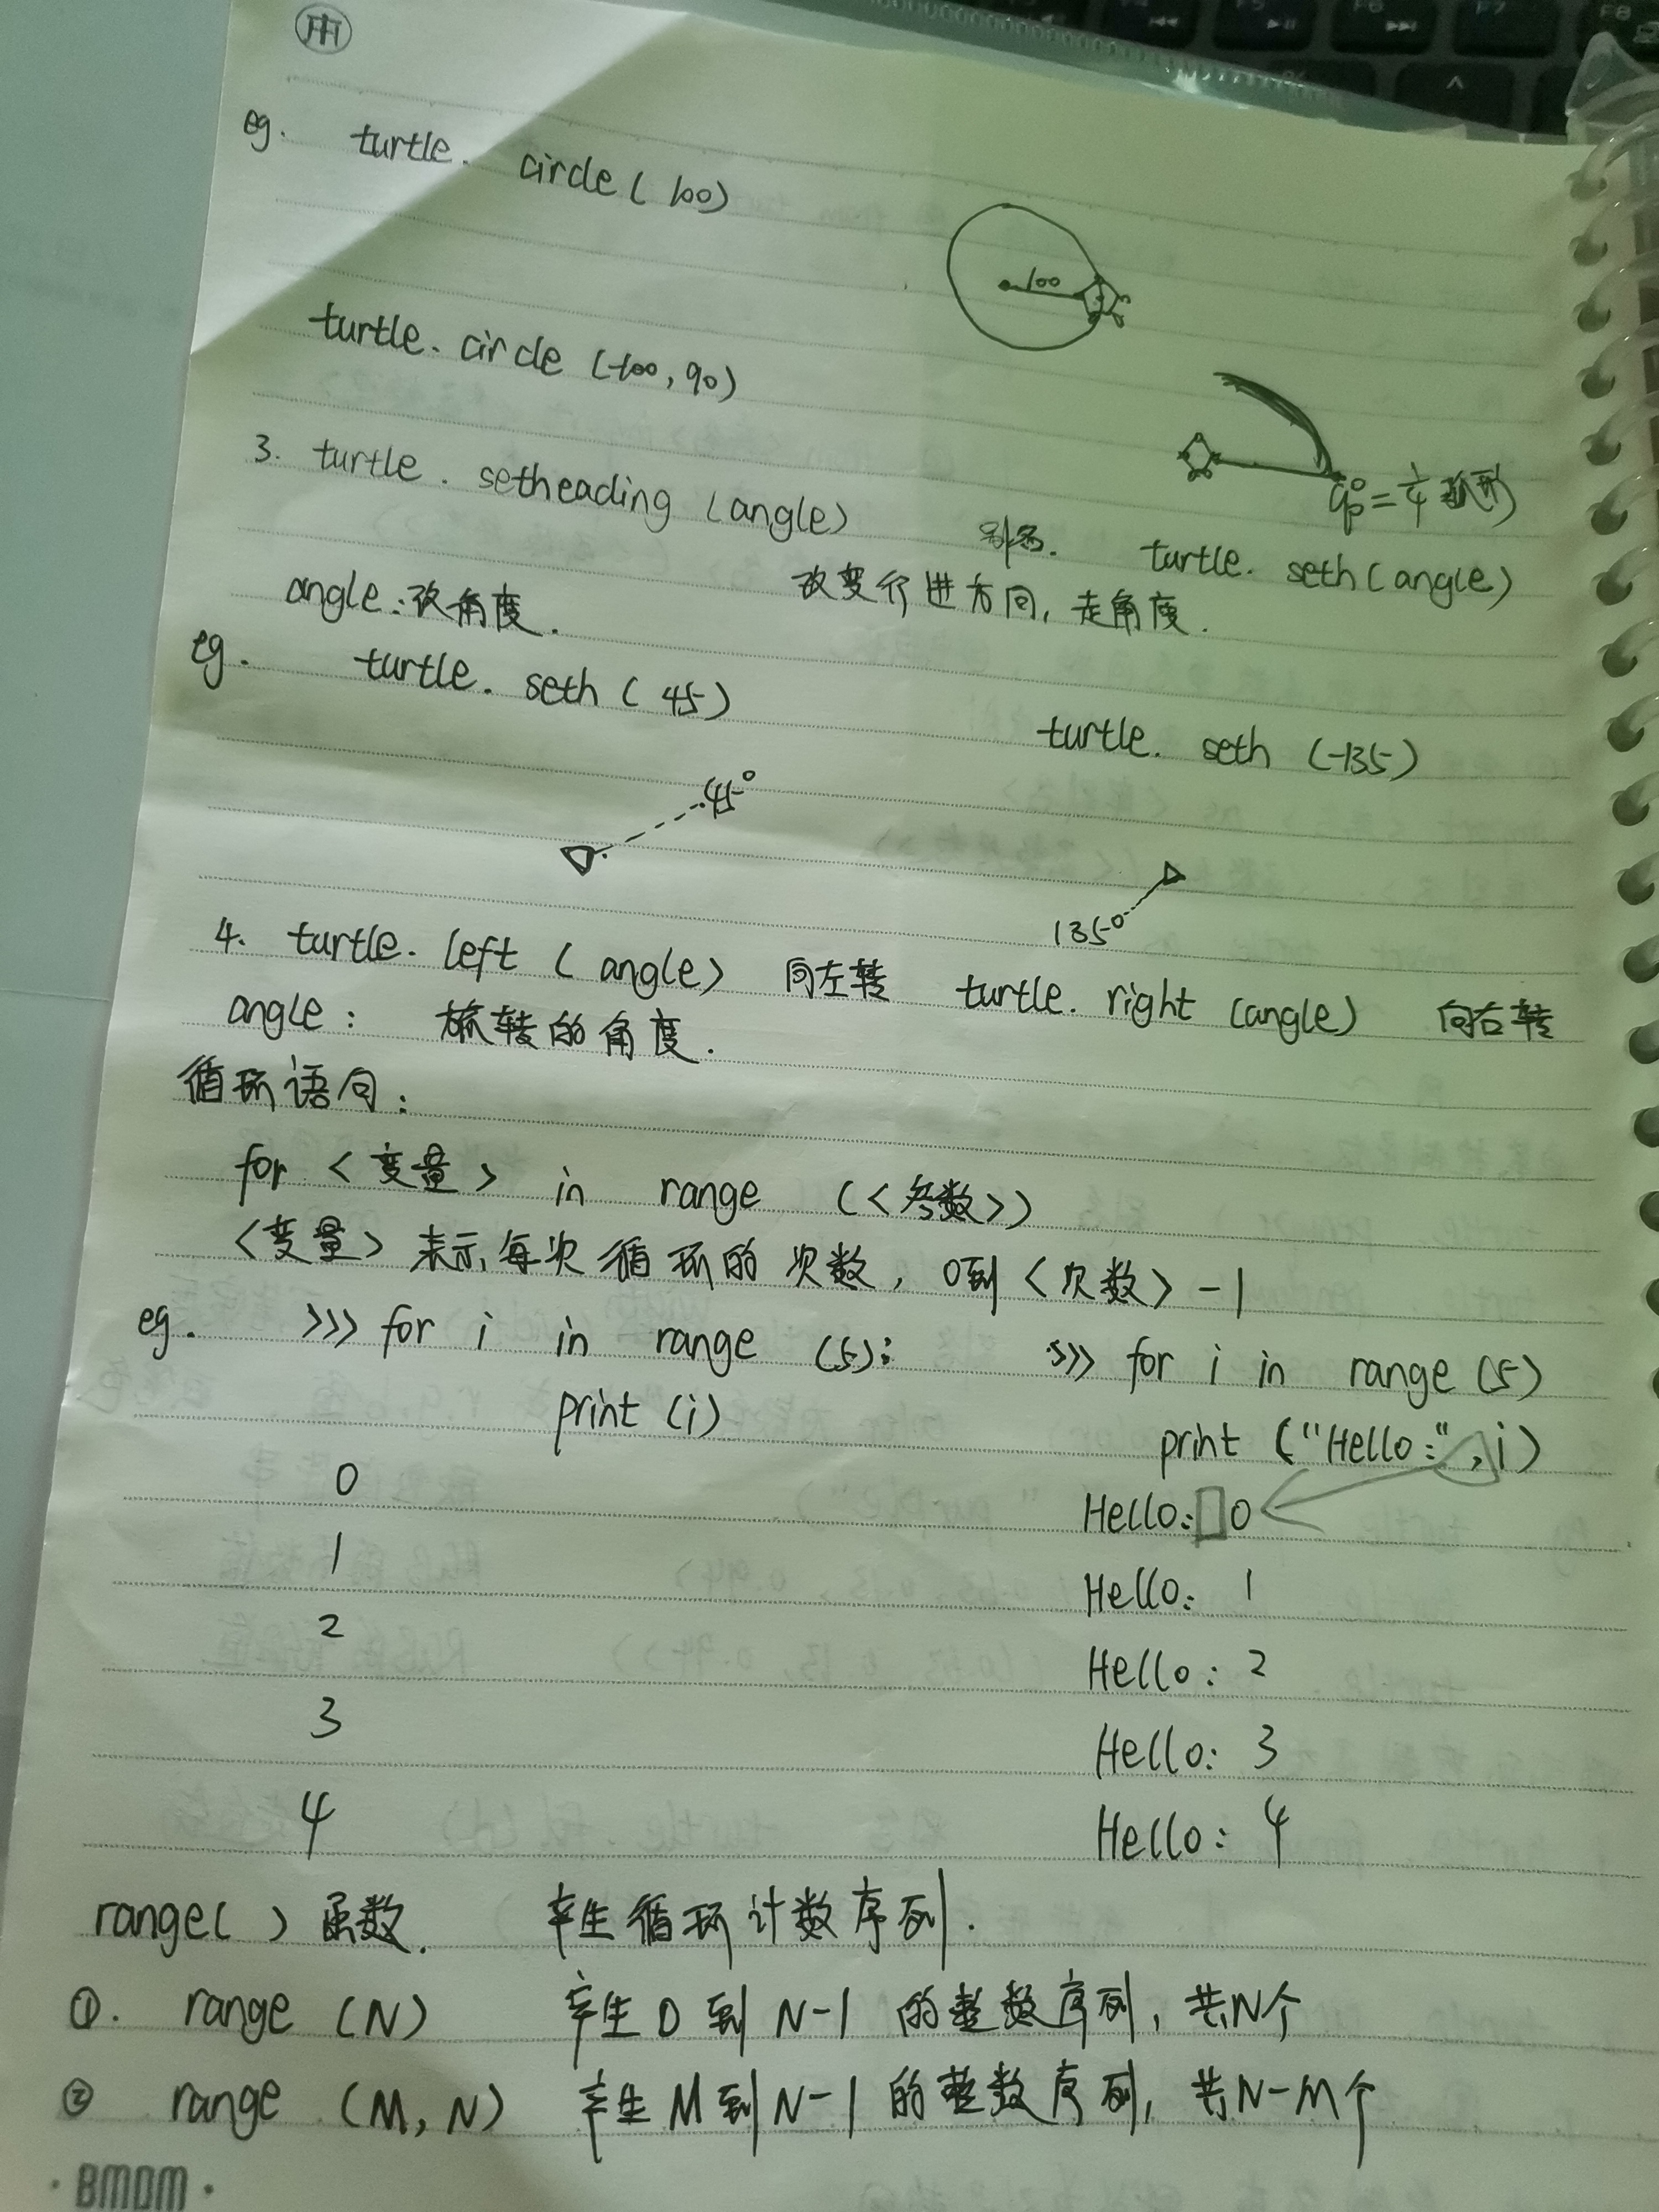 eg. turtle. circle (100)
100
turtle. circle (-100, 90)
90° = 1/4 弧形
3. turtle. setheading (angle) 别名. turtle. seth (angle)
angle: 改角度. 改变行进方向, 走角度.
eg. turtle. seth (45) turtle. seth (-135)
45°
135°
4. turtle. left (angle) 向左转 turtle. right (angle) 向右转
angle: 旋转的角度.
循环语句:
for <变量> in range (<参数>)
<变量> 表示每次循环的次数, 0到<次数>-1
eg. >>> for i in range (5): >>> for i in range (5)
print (i) print ("Hello:", i)
0 Hello: 0
1 Hello: 1
2 Hello: 2
3 Hello: 3
4 Hello: 4
range( ) 函数. 产生循环计数序列.
①. range (N) 产生 0 到 N-1 的整数序列, 共N个
② range (M, N) 产生 M 到 N-1 的整数序列, 共N-M个
·BMDM·